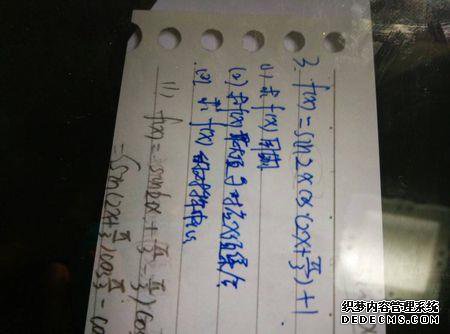 3. f(x)=sin2xcos(x+π/3)+1
(1) 求f(x)周期
(2) 求f(x)最大值与对应x的集合
(3) 求f(x)的对称中心
(1) f(x)=sin(2x+π/3-π/3)cos
=sin(2x+π/3)cosπ/3-co
织梦内容管理系统
DEDECMS.COM